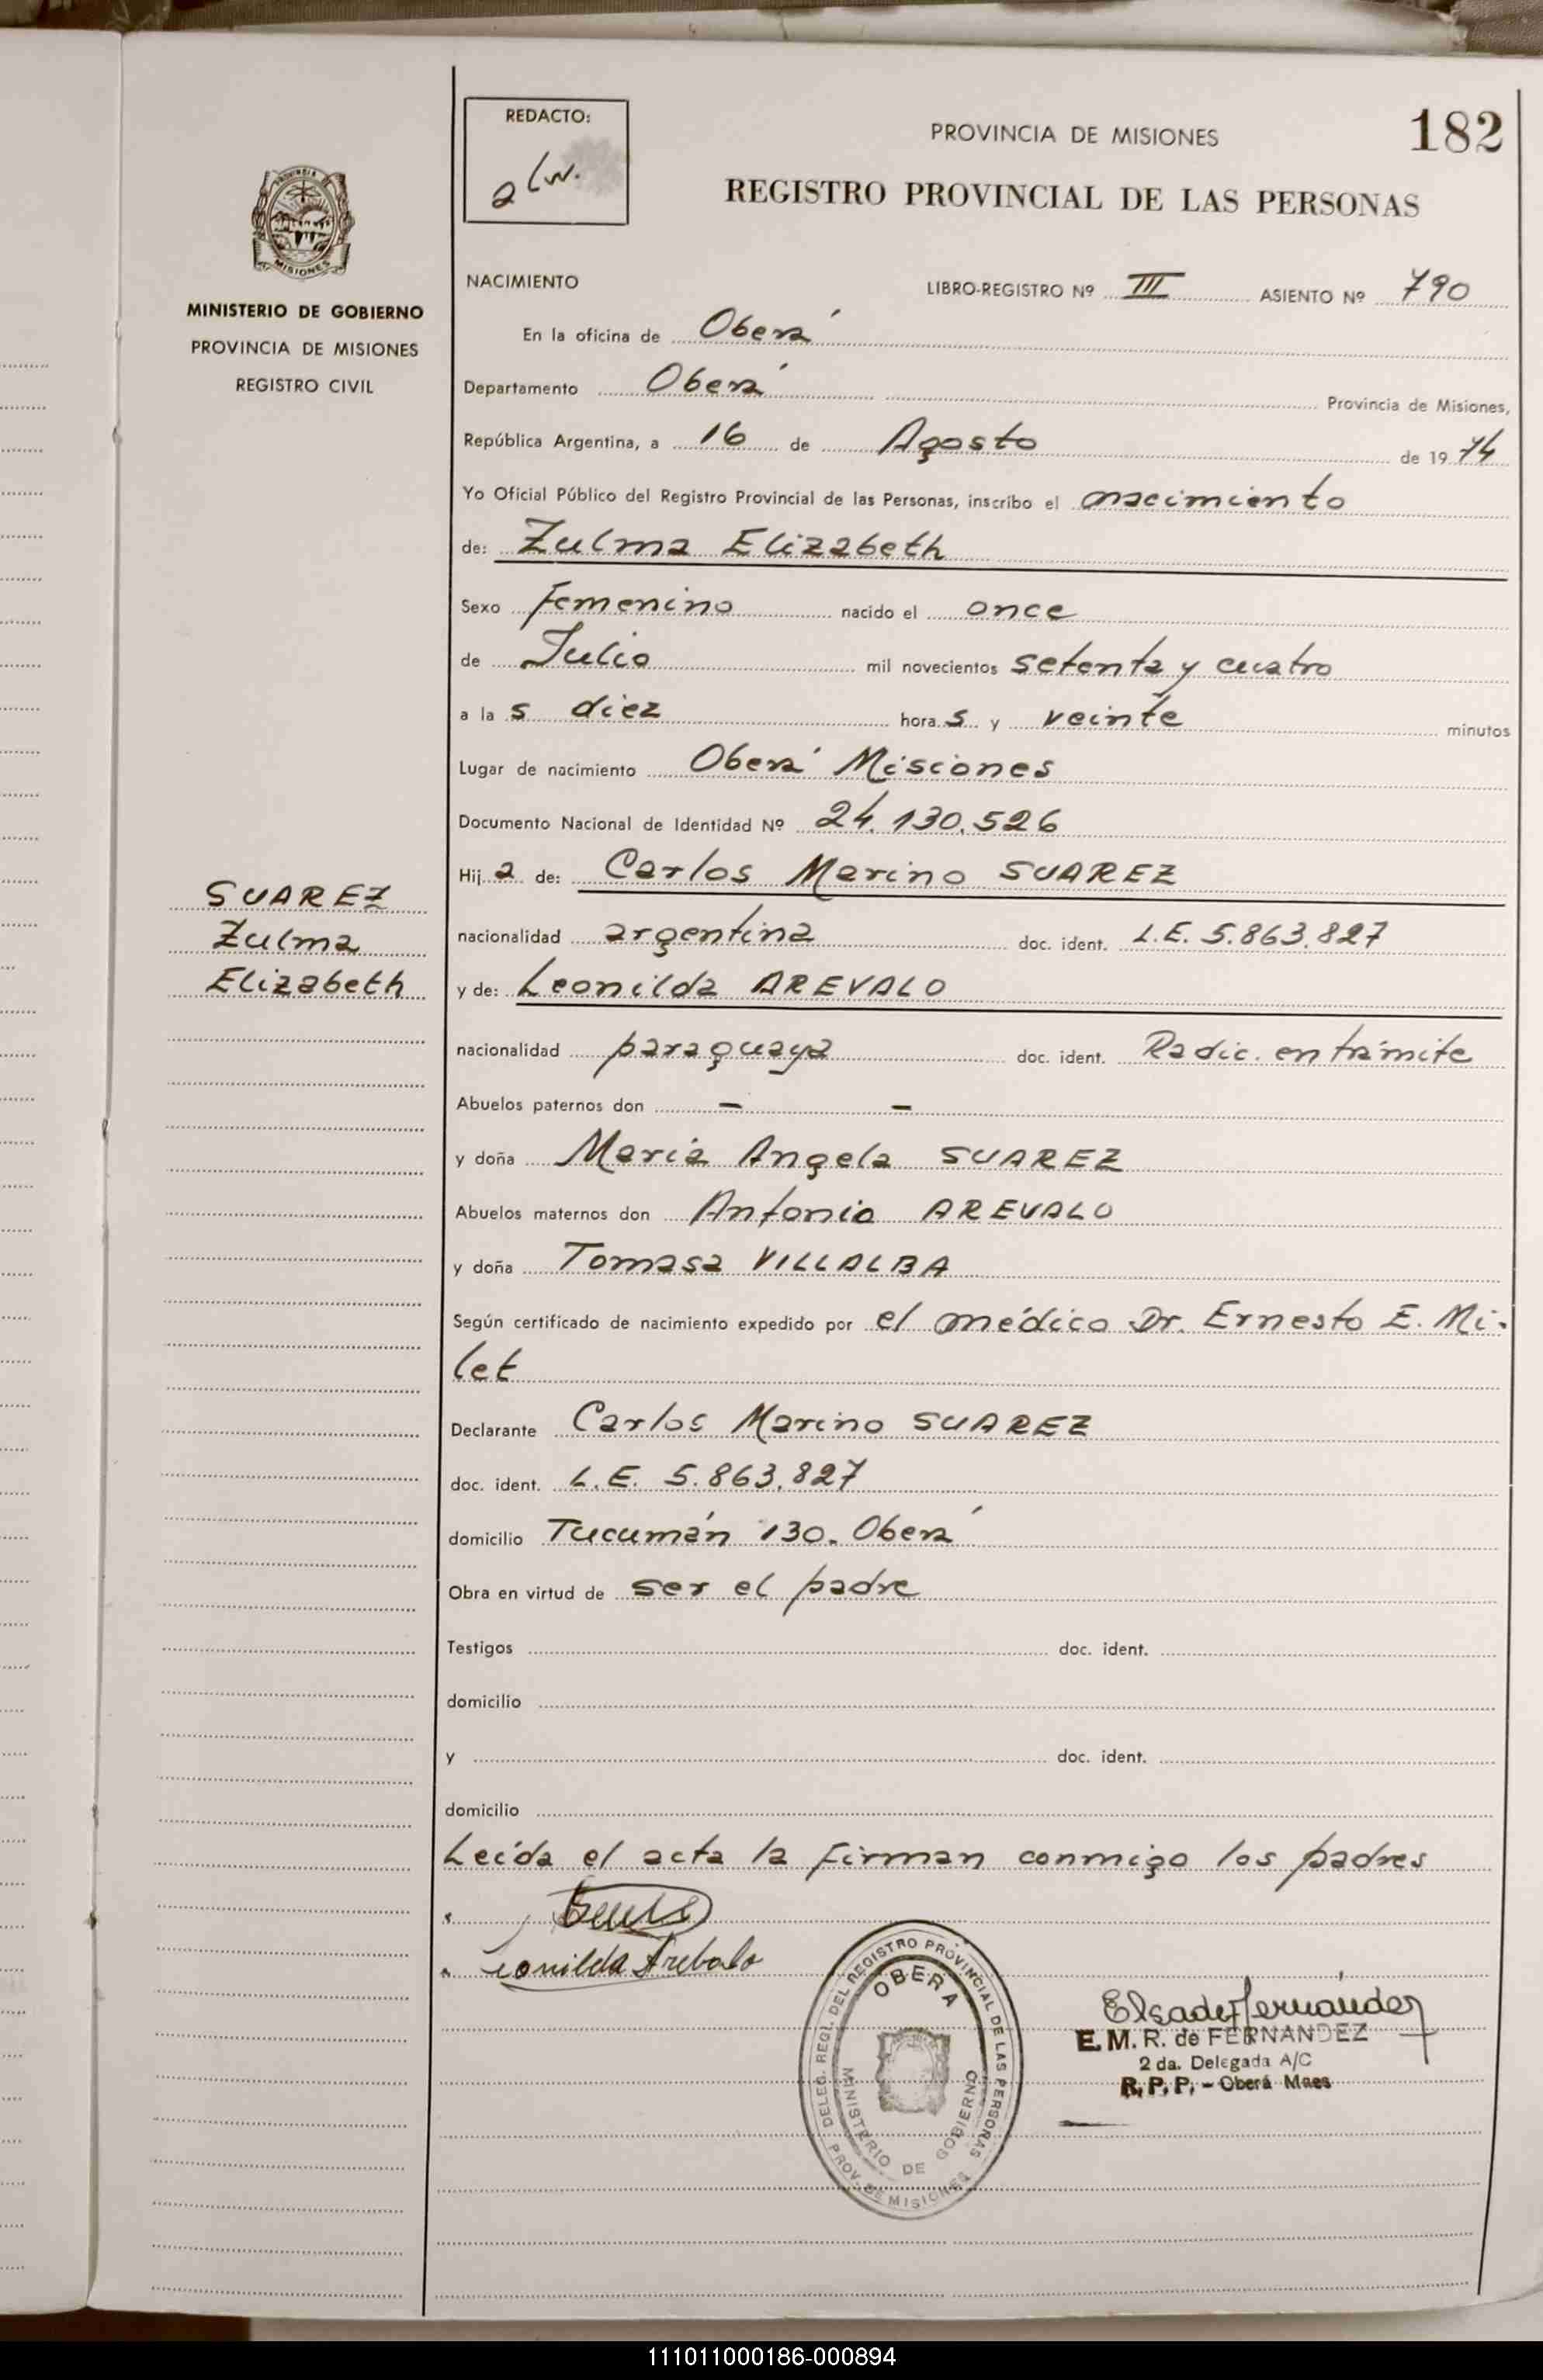 REDACTO:
PROVINCIA DE MISIONES
182
REGISTRO PROVINCIAL DE LAS PERSONAS
PROVINCIA DE
MISIONES
MINISTERIO DE GOBIERNO
PROVINCIA DE MISIONES
REGISTRO CIVIL
NACIMIENTO LIBRO-REGISTRO Nº III ASIENTO Nº 790
En la oficina de Oberá
Departamento Oberá Provincia de Misiones,
República Argentina, a 16 de Agosto de 1974
Yo Oficial Público del Registro Provincial de las Personas, inscribo el nacimiento
de: Zulma Elizabeth
Sexo Femenino nacido el once
de Julio mil novecientos setenta y cuatro
a las diez horas y veinte minutos
Lugar de nacimiento Oberá Misiones
Documento Nacional de Identidad Nº 24.130.526
Hija de: Carlos Marino SUAREZ
SUAREZ
Zulma
Elizabeth
nacionalidad argentina doc. ident. L.E. 5.863.827
y de: Leonilda AREVALO
nacionalidad paraguaya doc. ident. Radic. en trámite
Abuelos paternos don — —
y doña María Angela SUAREZ
Abuelos maternos don Antonio AREVALO
y doña Tomasa VILLALBA
Según certificado de nacimiento expedido por el médico Dr. Ernesto E. Mi-
let
Declarante Carlos Marino SUAREZ
doc. ident. L.E. 5.863.827
domicilio Tucumán 130. Oberá
Obra en virtud de ser el padre
Testigos doc. ident.
domicilio
y doc. ident.
domicilio
Leída el acta la firman conmigo los padres
Leonilda Arebalo
DELEG. REGL. DEL REGISTRO PROVINCIAL DE LAS PERSONAS
OBERA
MINISTERIO DE GOBIERNO
PROV. DE MISIONES
Elsa de Fernández
E. M. R. de FERNANDEZ
2 da. Delegada A/C
R. P. P. - Oberá Mnes
111011000186-000894